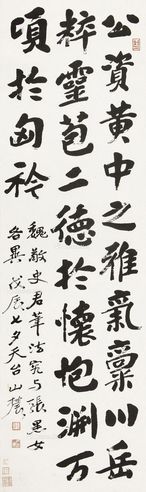 公資黃中之雅氣稟川岳
粹靈苞二德於懷抱渊万
頃於匈衿
魏敬史君筆法宛与張黑女
各異戊辰七夕天台山農